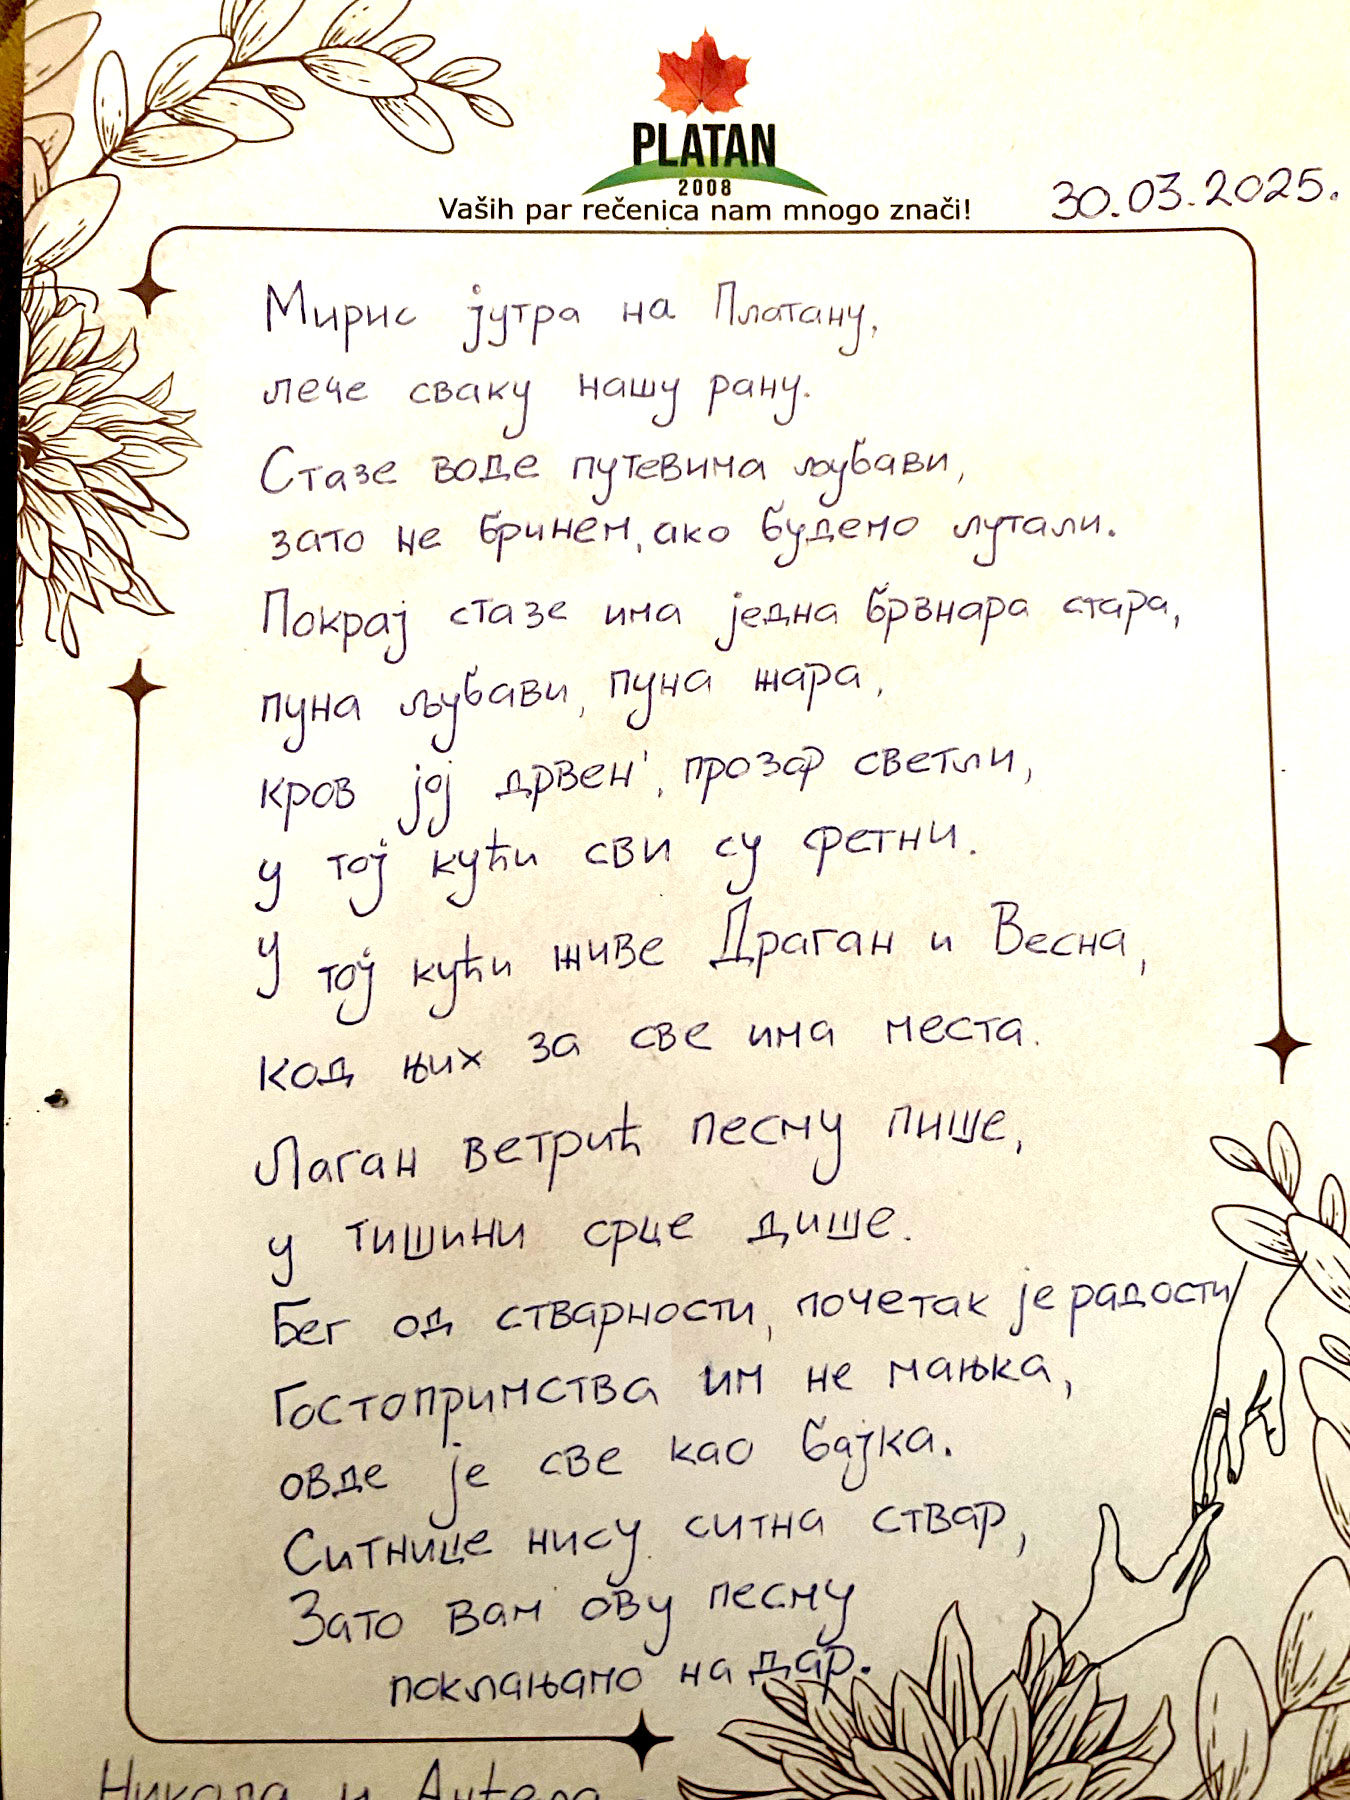 PLATAN
2008
Vaših par rečenica nam mnogo znači!
30.03.2025.
Мирис јутра на Платану,
лече сваку нашу рану.
Стазе воде путевима љубави,
зато не бринем, ако будемо лутали.
Покрај стазе има једна брвнара стара,
пуна љубави, пуна жара,
кров јој дрвен', прозор светли,
у тој кући сви су фетни.
У тој кући живе Драган и Весна,
код њих за све има места.
Лаган ветрић песму пише,
у тишини срце дише.
Бег од стварности, почетак је радости
Гостопримства им не мањка,
овде је све као бајка.
Ситнице нису ситна ствар,
Зато вам ову песму
поклањамо на дар.
Никола и Анђела